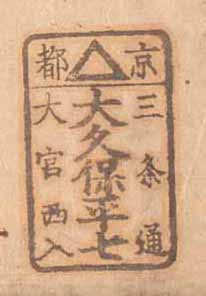 京都
三条通
大久保平七
大宮西入